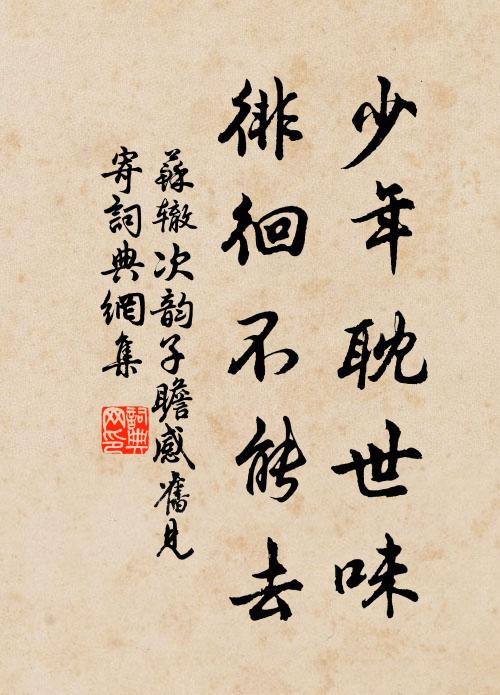 少年耽世味
徘徊不能去
蘇辙次韵子瞻感舊見
寄詞典網集
詞典
网印